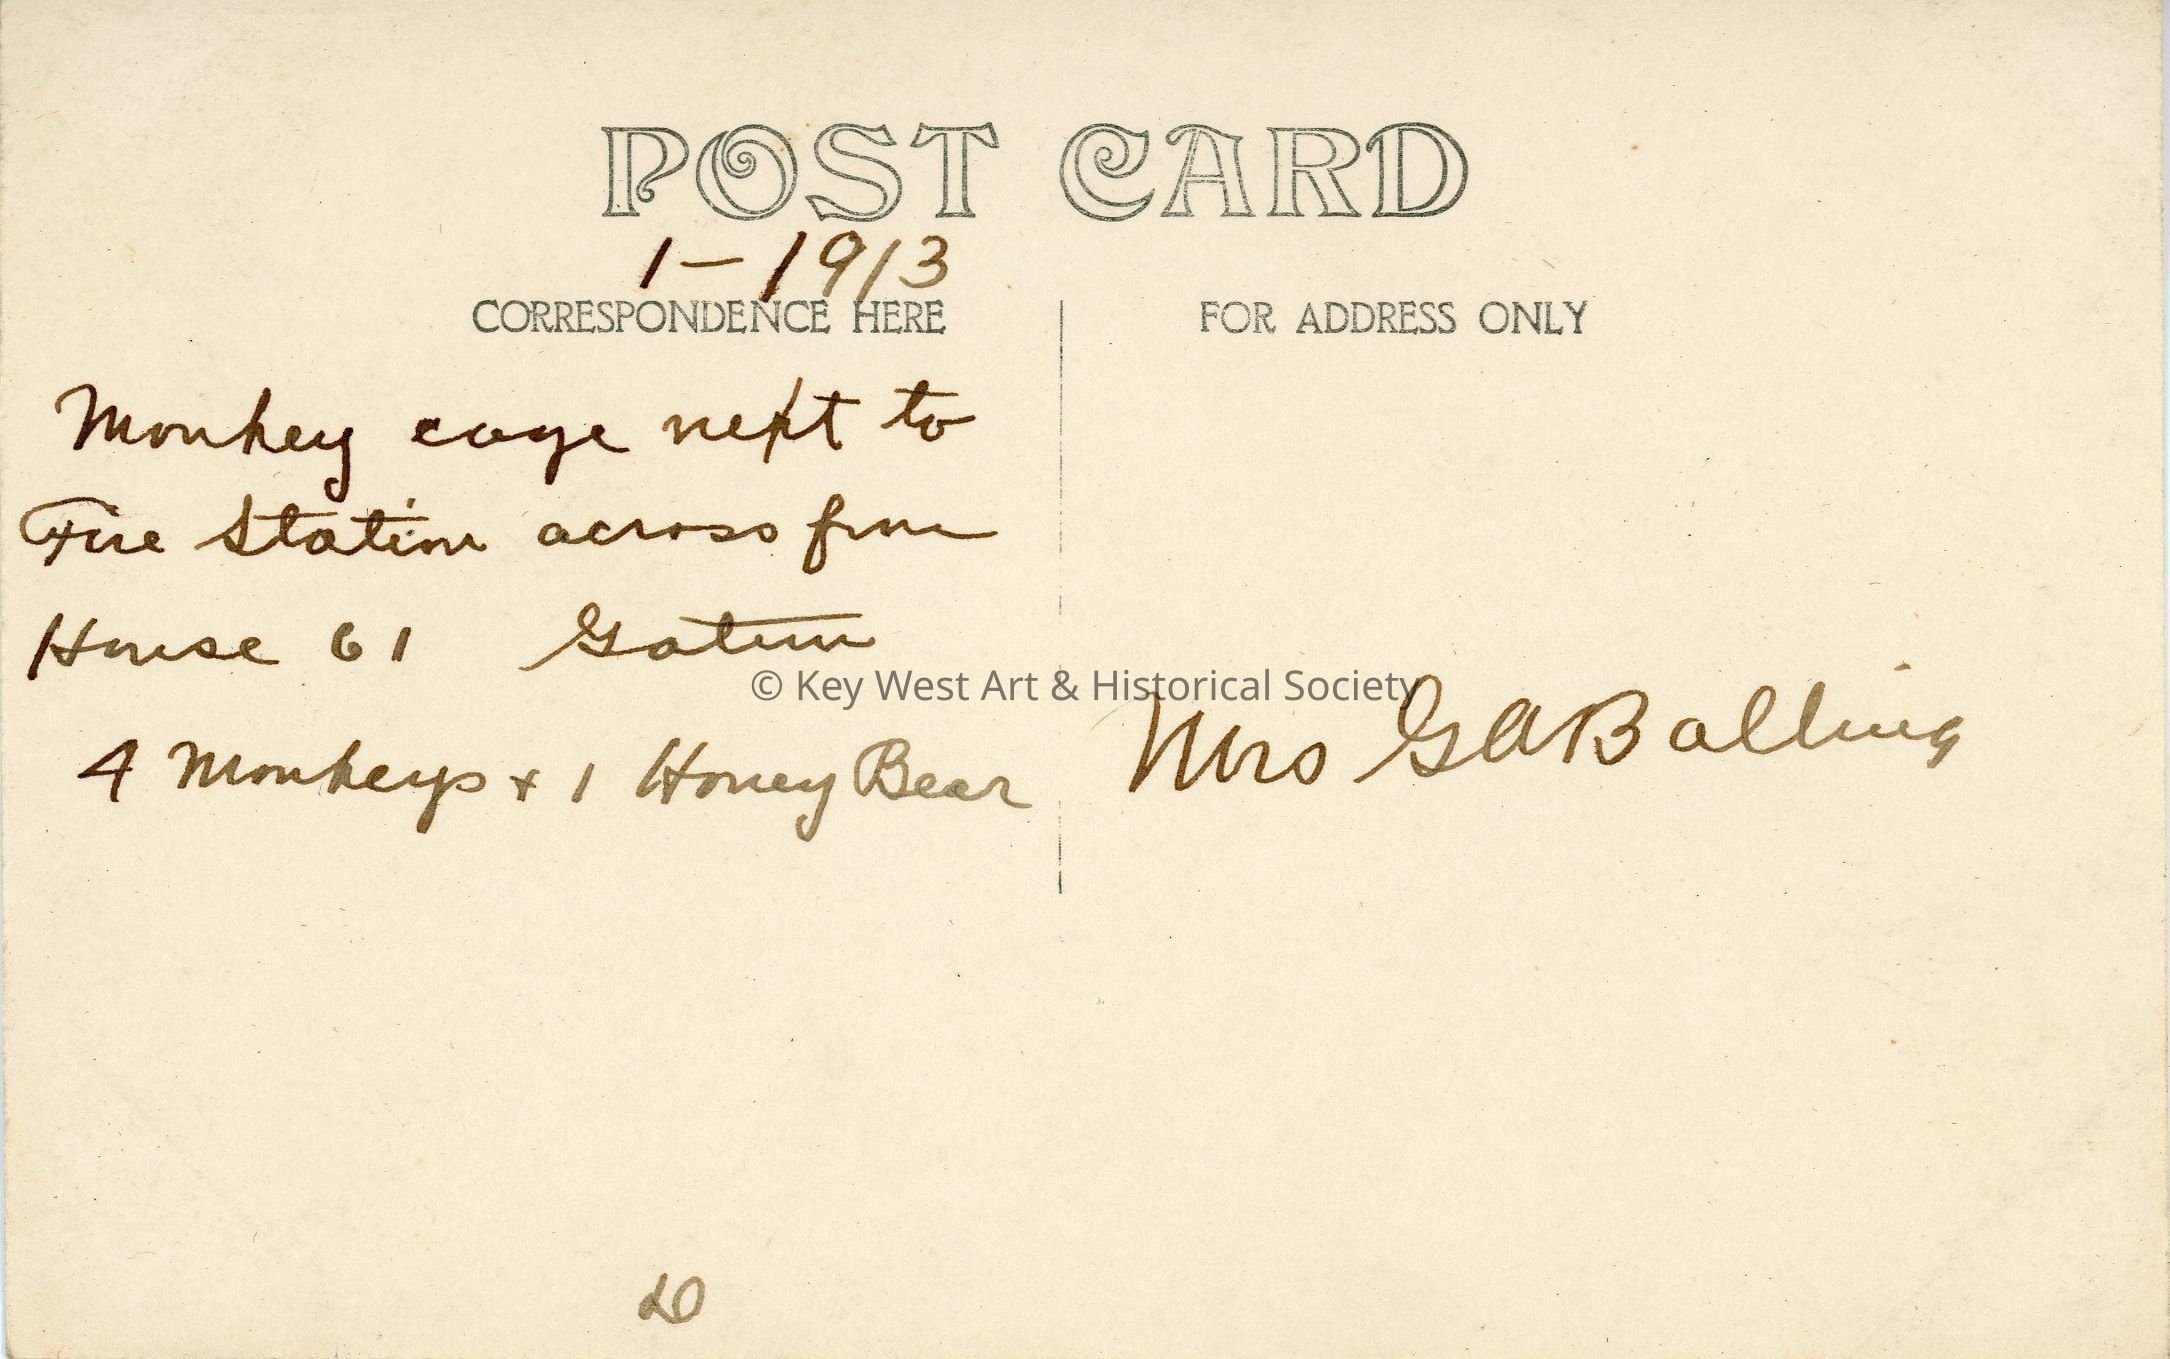 POST CARD
1-1913
CORRESPONDENCE HERE
FOR ADDRESS ONLY
Monkey cage next to
Fire Station across from
House 61 Gatun
4 Monkeys + 1 Honey Bear
© Key West Art & Historical Society
Mrs G A Bolling